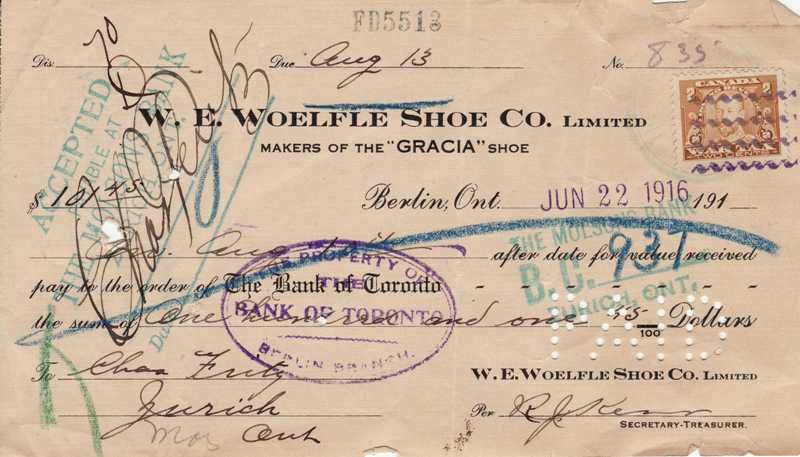 FD5513
Dis. Due Aug 13 No. 835
CANADA
TWO CENTS
W. E. WOELFLE SHOE CO. LIMITED
MAKERS OF THE "GRACIA" SHOE
ACCEPTED
PAYABLE AT
THE MOLSONS BANK
$ 101.45 Berlin, Ont. JUN 22 1916 191
On Aug 10th after date for value received
THE MOLSONS BANK
B.C. 937
ZURICH, ONT.
pay to the order of The Bank of Toronto
THE PROPERTY OF
THE
BANK OF TORONTO
BERLIN BRANCH.
the sum of One hundred and one 45/100 Dollars
PAID
To Chas Fritz
W. E. WOELFLE SHOE CO. LIMITED
Zurich
Ont
Per R.J. Kerr
SECRETARY-TREASURER.